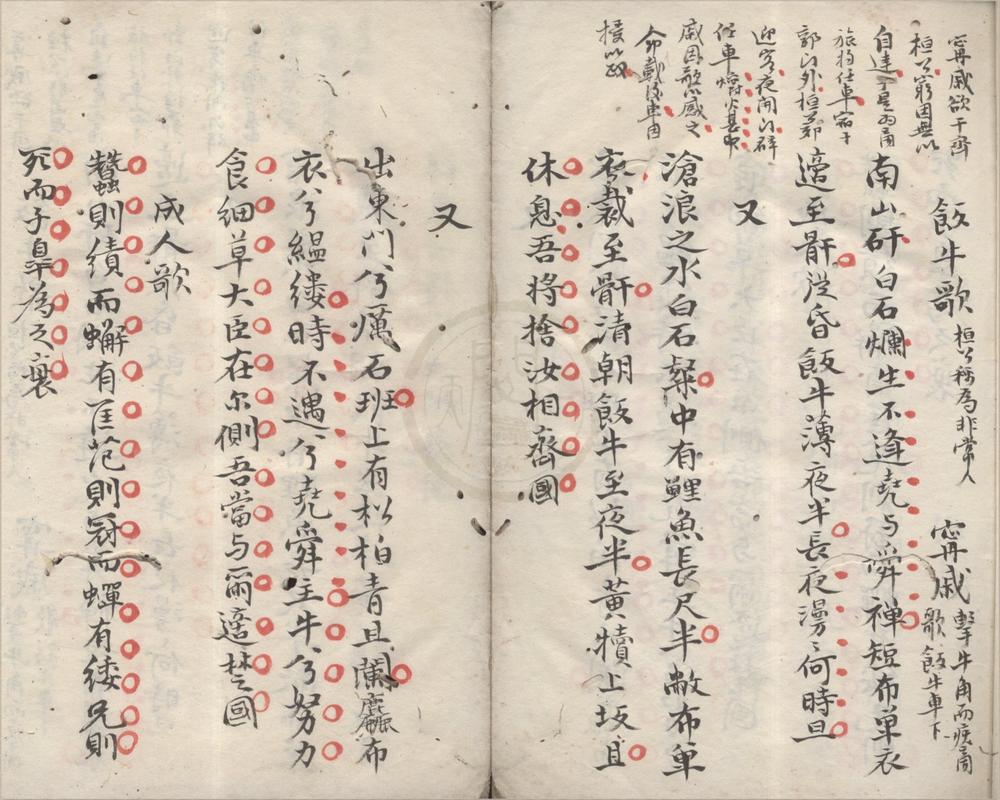 甯戚欲干齊
桓公窮困無以
自達于是為商
旅將任車宿于
郭門外桓公郊
迎客夜開門辟
任車爝火甚中
戚因歌公感之
命載後車因
授以政
飯牛歌 桓公称為非常人 甯戚 擊牛角而疾商
歌飯牛車下
南山矸白石爛生不逢堯与舜禪短布單衣
適至骭從昏飯牛薄夜半長夜漫々何時旦
又
滄浪之水白石粲中有鯉魚長尺半敝布單
衣裁至骭清朝飯牛至夜半黃犢上坂且
休息吾將捨汝相齊國
又
出東門兮厲石班上有松柏青且闌麤布
衣兮縕縷時不遇兮堯舜主牛兮努力
食細草大臣在尔側吾當与爾適楚國
成人歌
蠶則績而蠏有匡范則冠而蟬有緌兄則
死而子皋為之衰